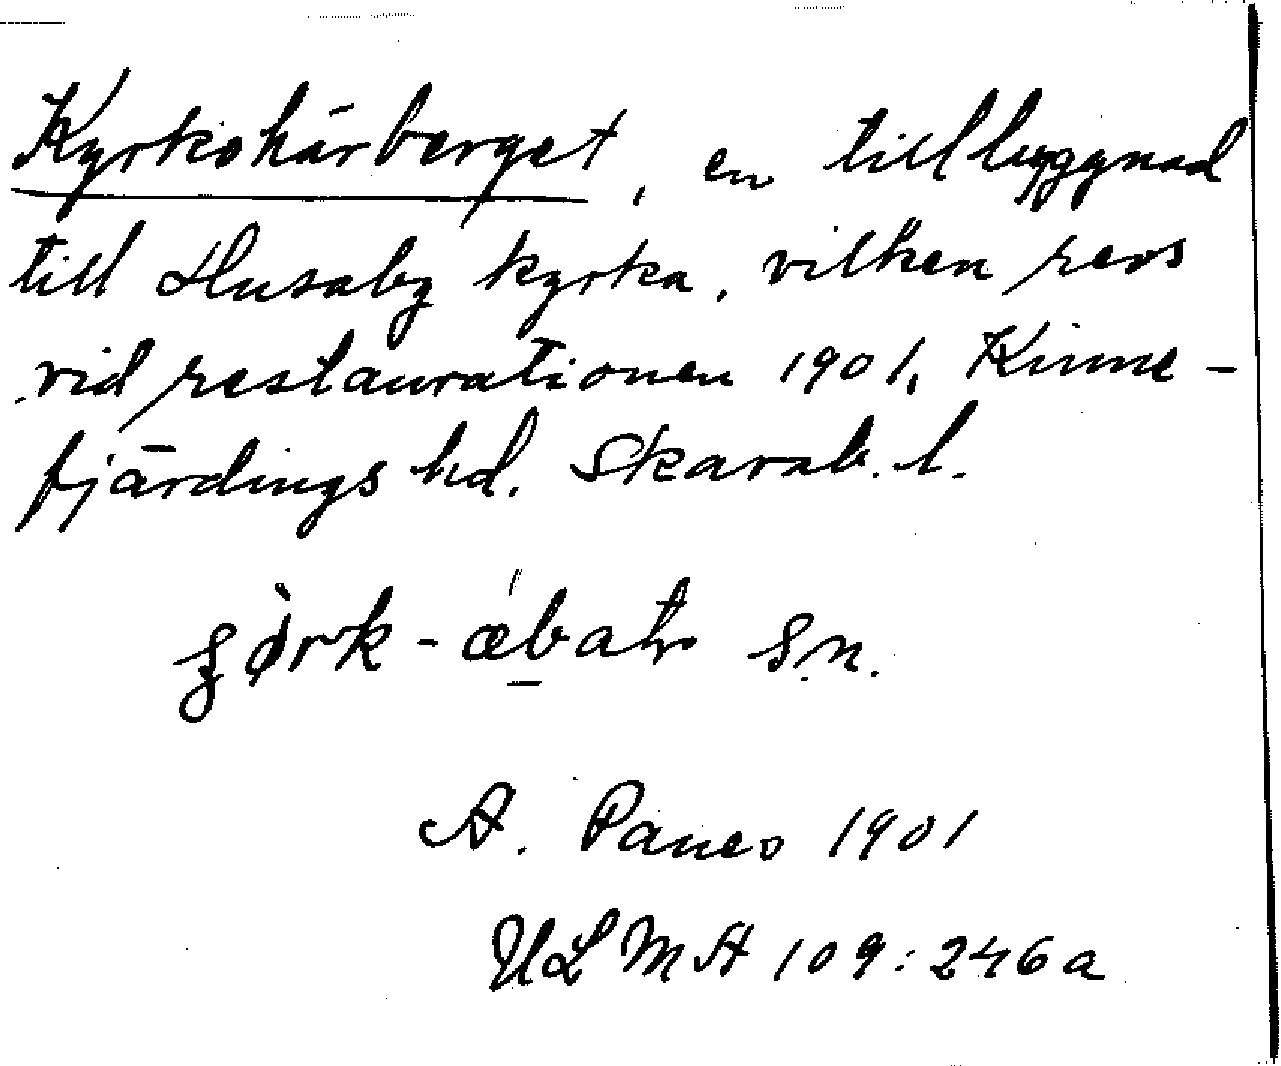 Kyrkohärberget, en tillbyggnad
till Husaby kyrka, vilken revs
vid restaurationen 1901, Kinne-
fjärdings hd. Skarab. l.
sn.
A. Paues 1901
ULMA 109:246a